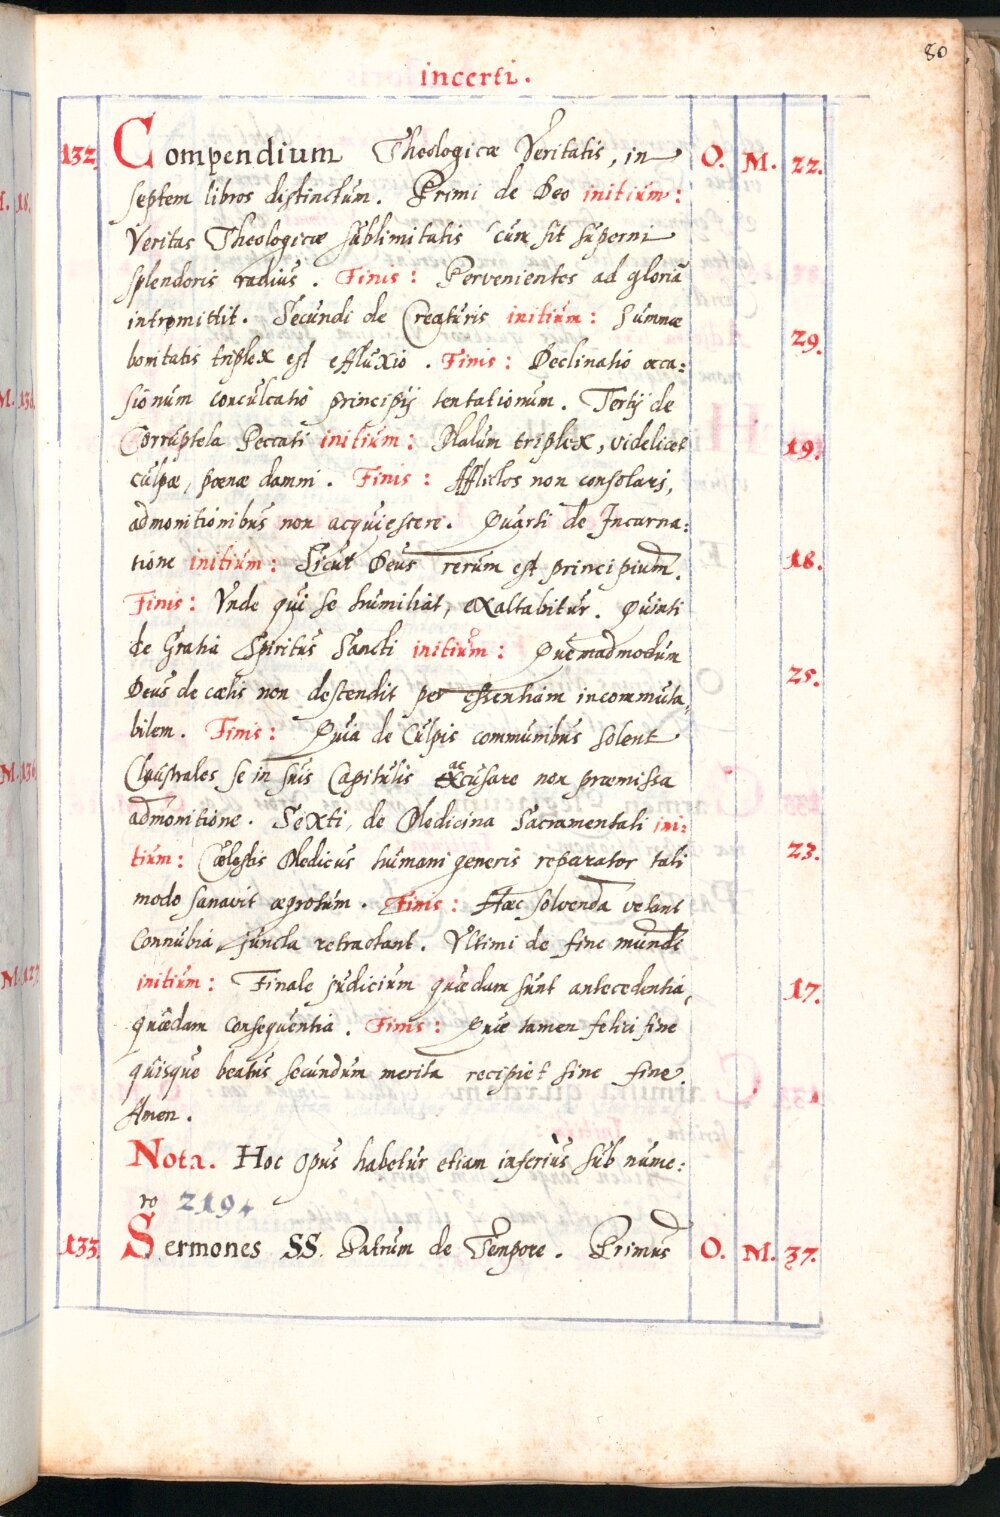 80
incerti.
132 Compendium Theologicæ Veritatis, in O. M. 22.
septem libros distinctum. Primi de Deo initium:
Veritas Theologicæ sublimitatis cum sit superni
splendoris radius. Finis: Pervenientes ad gloriā
intromittit. Secundi de Creaturis initium: Summæ
bonitatis triplex est effluxio. Finis: Declinatio occa: 29.
sionum conculcatio principij tentationum. Tertij de
Corruptela Peccati initium: Malum triplex, videlicet 19.
culpæ, pœnæ damni. Finis: Afflictos non consolari,
admonitionibus non acquiescere. Quarti de Incarna:
tione initium: Sicut Deus rerum est principium. 18.
Finis: Vnde qui se humiliat, exaltabitur. Quinti
de Gratia Spiritus Sancti initium: Quemadmodum
Deus de cœlis non descendit per essentiam incommuta, 25.
bilem. Finis: Quia de Culpis communibus solent
Claustrales se in suis Capitulis accusare non præmissa
admonitione. Sexti, de Medicina Sacramentali ini:
tium: Cœlestis Medicus humani generis reparator tali 23.
modo sanavit ægrotum. Finis: Hæc solvenda vetant
Connubia juncta retractant. Vltimi de fine mundi
initium: Finale judicium quædam sunt antecedentia, 17.
quædam consequentia. Finis: Quæ tamen felici fine
quisque beatus secundum merita recipiet sine fine.
Amen.
Nota. Hoc opus habetur etiam inferiùs sub nume:
ro 219.
133. Sermones SS. Patrum de Tempore. Primus O. M. 37.
M. 18.
M. 136
M. 127